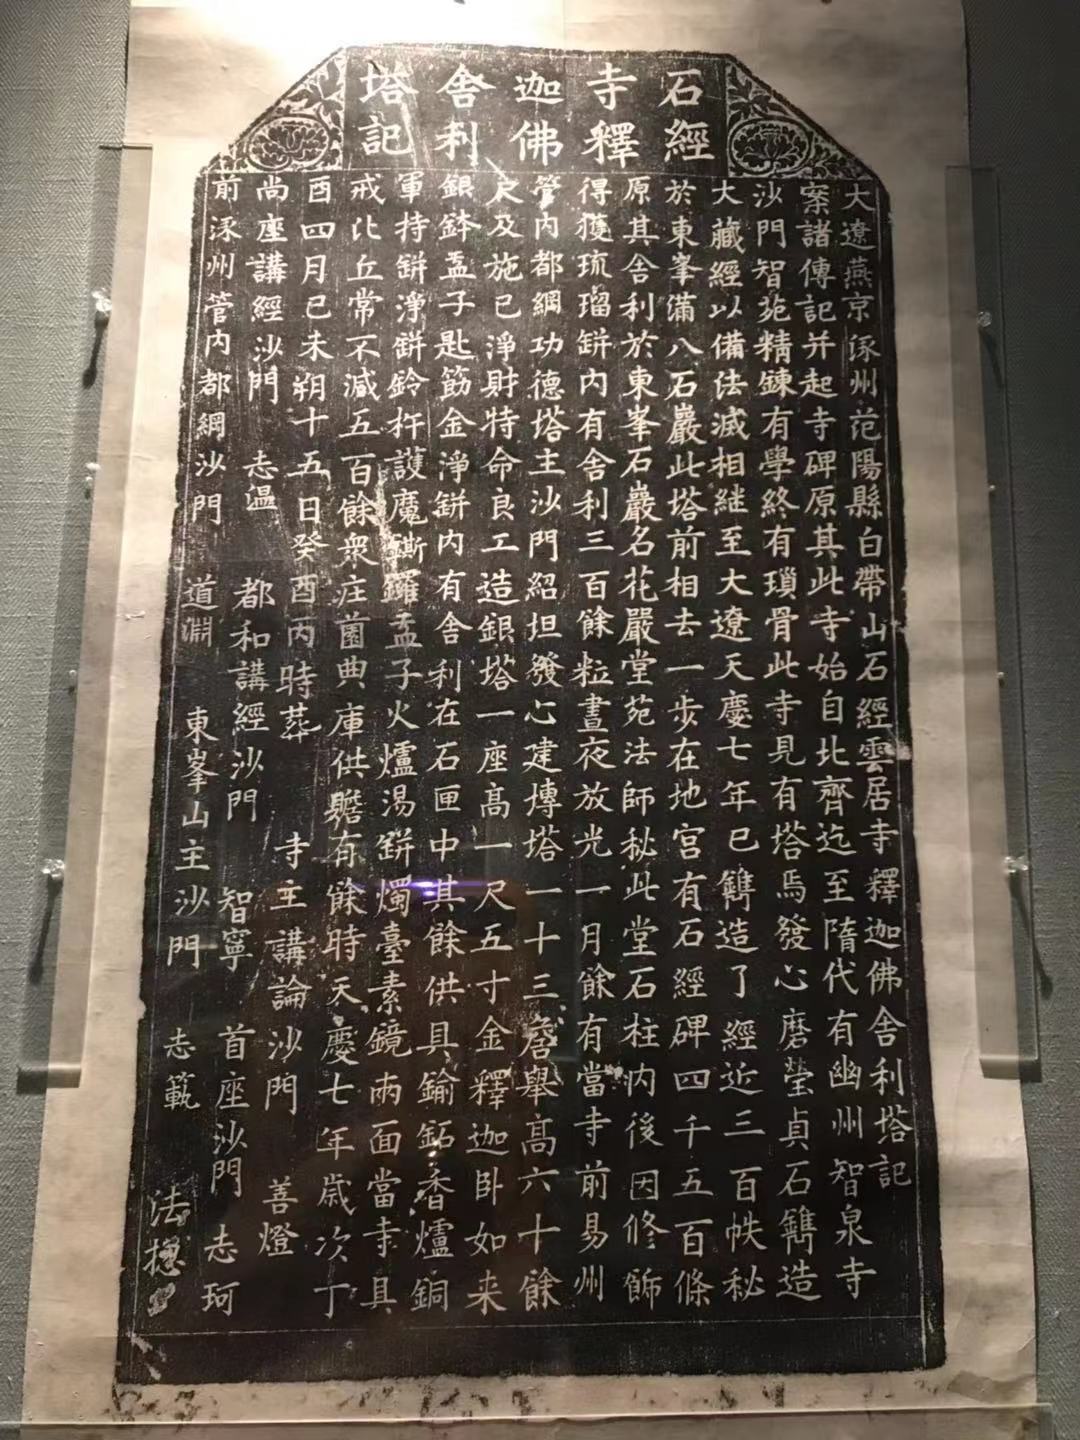 石經
寺釋
迦佛
舍利
塔記
大遼燕京涿州范陽縣白帶山石經雲居寺釋迦佛舍利塔記
案諸傳記并起寺碑原其此寺始自北齊迄至隋代有幽州智泉寺
沙門智苑精鍊有學終有瑣骨此寺見有塔焉發心磨瑩貞石鐫造
大藏經以備法滅相継至大遼天慶七年已鐫造了經近三百帙秘
於東峯備八石巖此塔前相去一步在地宮有石經碑四千五百條
原其舍利於東峯石巖名花嚴堂苑法師秘此堂石柱内後因修飾
得獲琉瑠缾内有舍利三百餘粒晝夜放光一月餘有當寺前易州
管内都綱功德塔主沙門紹坦發心建塼塔一十三簷舉高六十餘
尺及施已淨財特命良工造銀塔一座高一尺五寸金釋迦卧如来
銀鉢盂子匙筯金淨缾内有舍利在石匣中其餘供具鍮鉐香爐銅
軍持缾淨缾鈴杵護魔鐁鑼盂子火爐湯缾燭臺素鏡兩面當寺具
戒比丘常不減五百餘衆庄菌典庫供贍有餘時天慶七年歲次丁
酉四月己未朔十五日癸酉丙時葬 寺主講論沙門 善燈
尚座講經沙門 志温 都和講經沙門 智寧 首座沙門 志珂
前涿州管内都綱沙門 道淵 東峯山主沙門 志範 法揔